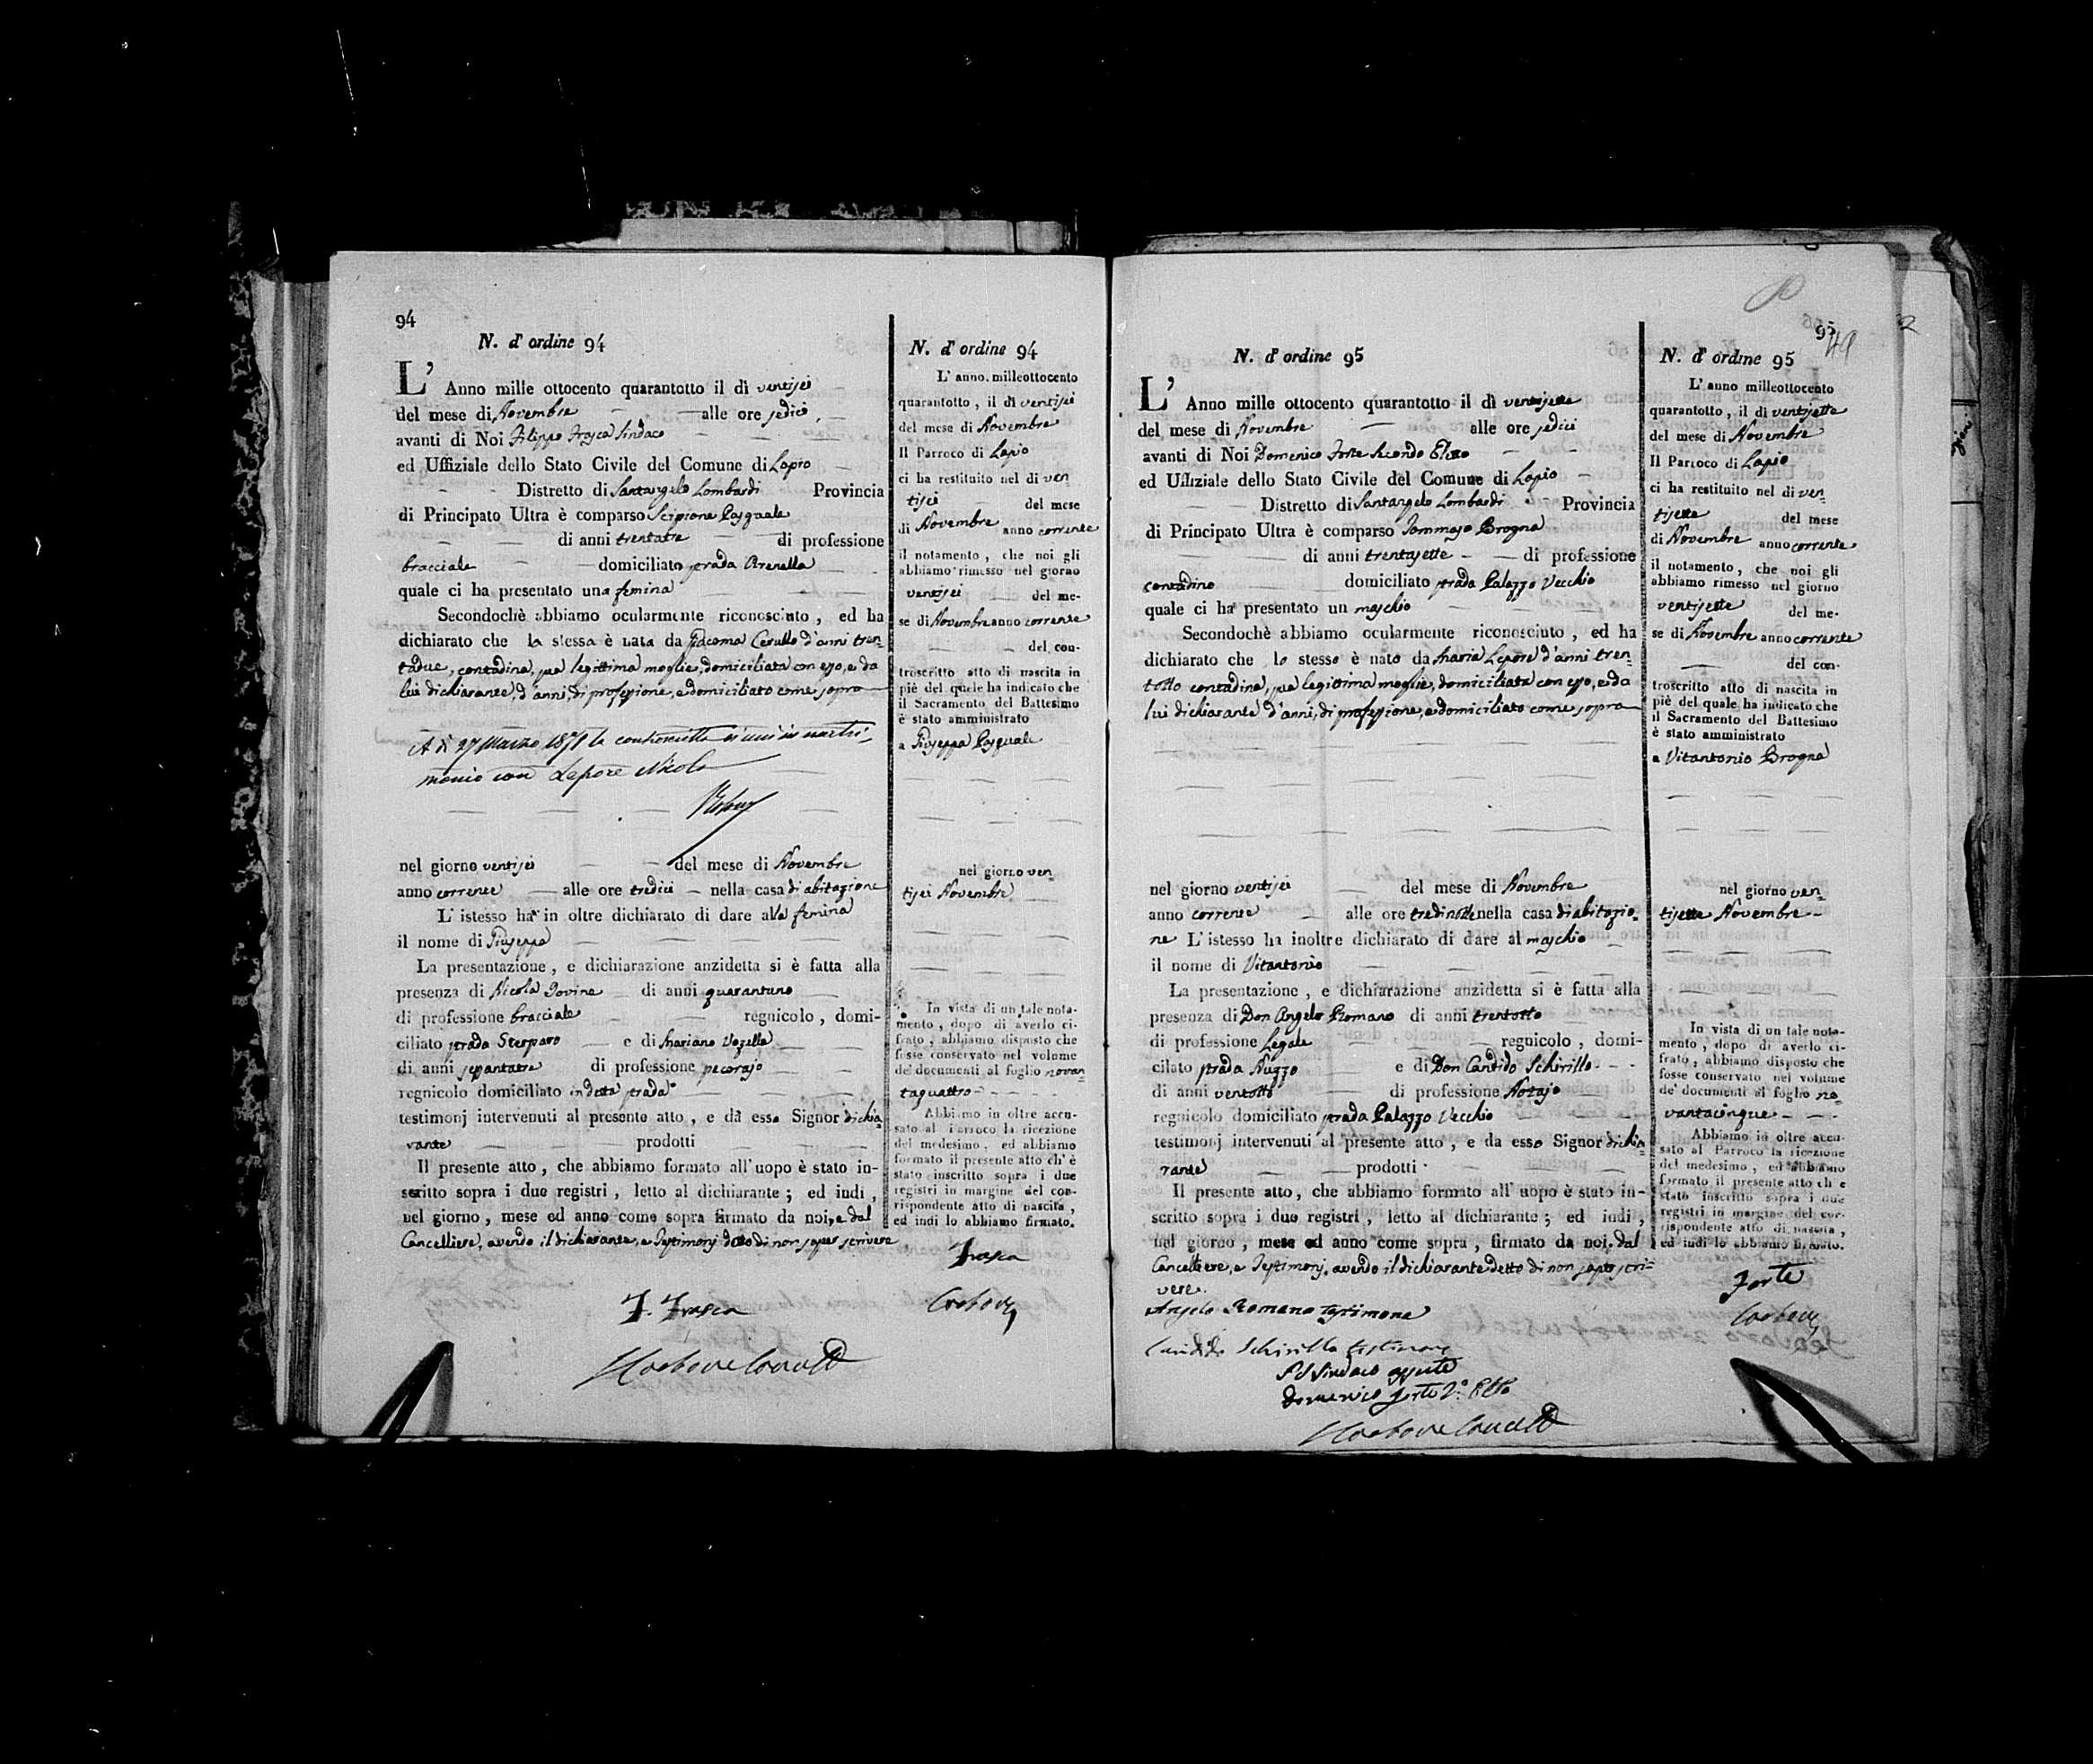 94
N. d' ordine 94
L' Anno mille ottocento quarantotto il dì ventisei
del mese di Novembre alle ore sedici
avanti di Noi Filippo Frasca Sindaco
ed Uffiziale dello Stato Civile del Comune di Lapio
Distretto di Santangelo Lombardi Provincia
di Principato Ultra è comparso Scipione Pasquale
di anni trentatre di professione
bracciale domiciliato strada Arenella
quale ci ha presentato una femina
Secondochè abbiamo ocularmente riconosciuto, ed ha
dichiarato che la stessa è nata da Giacoma Cerullo d'anni tren-
tadue, contadina, sua legittima moglie, domiciliata con esso, e da
lui dichiarante, d'anni, di professione, e domiciliato come sopra
A dì 27 Marzo 1871 la contronotata si unì in matri-
monio con Lepore Nicola
nel giorno ventisei del mese di Novembre
anno corrente alle ore tredici nella casa di abitazione
L'istesso ha in oltre dichiarato di dare alla femina
il nome di Giuseppa
La presentazione, e dichiarazione anzidetta si è fatta alla
presenza di Nicola Iovine di anni quarantuno
di professione bracciale regnicolo, domi-
ciliato strada Sterparo e di Mariano Vozella
di anni sessantatre di professione pecorajo
regnicolo domiciliato in detta strada
testimonj intervenuti al presente atto, e da esso Signor dichia-
rante prodotti
Il presente atto, che abbiamo formato all'uopo è stato in-
scritto sopra i due registri, letto al dichiarante; ed indi,
nel giorno, mese ed anno come sopra firmato da noi, e dal
Cancelliere, avendo il dichiarante, e Testimonj detto di non saper scrivere
F. Frasca
N. d' ordine 94
L' anno milleottocento
quarantotto, il dì ventisei
del mese di Novembre
Il Parroco di Lapio
ci ha restituito nel dì ven
tisei del mese
di Novembre anno corrente
il notamento, che noi gli
abbiamo rimesso nel giorno
ventisei del me-
se di Novembre anno corrente
del con-
troscritto atto di nascita in
piè del quele ha indicato che
il Sacramento del Battesimo
è stato amministrato
a Giuseppa Pasquale
nel giorno ven-
tisei Novembre
In vista di un tale nota-
mento, dopo di averlo ci-
frato, abbiamo disposto che
fosse conservato nel volume
de' documenti al foglio novan-
taquattro
Abbiamo in oltre accu-
sato al Parroco la ricezione
del medesimo, ed abbiamo
formato il presente atto ch'è
stato inscritto sopra i due
registri in margine del cor-
rispondente atto di nascita,
ed indi lo abbiamo firmato.
Frasca
95
49
N. d' ordine 95
L' Anno mille ottocento quarantotto il dì ventisette
del mese di Novembre alle ore sedici
avanti di Noi Domenico Forte Secondo Eletto
ed Uffiziale dello Stato Civile del Comune di Lapio
Distretto di Santangelo Lombardi Provincia
di Principato Ultra è comparso Tommaso Brogna
di anni trentasette di professione
contadino domiciliato strada Palazzo Vecchio
quale ci ha presentato un maschio
Secondochè abbiamo ocularmente riconosciuto, ed ha
dichiarato che lo stesso è nato da Maria Lepore d'anni tren-
totto contadina, sua legittima moglie, domiciliata con esso, e da
lui dichiarante d'anni, di professione, e domiciliato come sopra
nel giorno ventisei del mese di Novembre
anno corrente alle ore tredinotte nella casa di abitazio-
ne L'istesso ha inoltre dichiarato di dare al maschio
il nome di Vitantonio
La presentazione, e dichiarazione anzidetta si è fatta alla
presenza di Don Angelo Romano di anni trentotto
di professione Legale regnicolo, domi-
ciliato strada Nuzzo e di Don Candido Schirillo
di anni ventotto di professione Notajo
regnicolo domiciliato strada Palazzo Vecchio
testimonj intervenuti al presente atto, e da esso Signor dichia-
rante prodotti
Il presente atto, che abbiamo formato all'uopo è stato in-
scritto sopra i due registri, letto al dichiarante; ed indi,
nel giorno, mese ed anno come sopra, firmato da noi, dal
Cancelliere, e Testimonj, avendo il dichiarante detto di non saper scri-
vere.
Angelo Romano testimone
Candido Schirillo testimone
Pel Sindaco assente
Domenico Forte 2.° Eletto
N. d' ordine 95
L' anno milleottocento
quarantotto, il dì ventisette
del mese di Novembre
Il Parroco di Lapio
ci ha restituito nel dì ven-
tisette del mese
di Novembre anno corrente
il notamento, che noi gli
abbiamo rimesso nel giorno
ventisette del me-
se di Novembre anno corrente
del con-
troscritto atto di nascita in
piè del quale ha indicato che
il Sacramento del Battesimo
è stato amministrato
a Vitantonio Brogna
nel giorno ven-
tisette Novembre
In vista di un tale nota-
mento, dopo di averlo ci-
frato, abbiamo disposto che
fosse conservato nel volume
de' documenti al foglio no-
vantacinque
Abbiamo in oltre accu-
sato al Parroco la ricezione
del medesimo, ed abbiamo
formato il presente atto ch'è
stato inscritto sopra i due
registri in margine del cor-
rispondente atto di nascita,
ed indi lo abbiamo firmato.
Forte